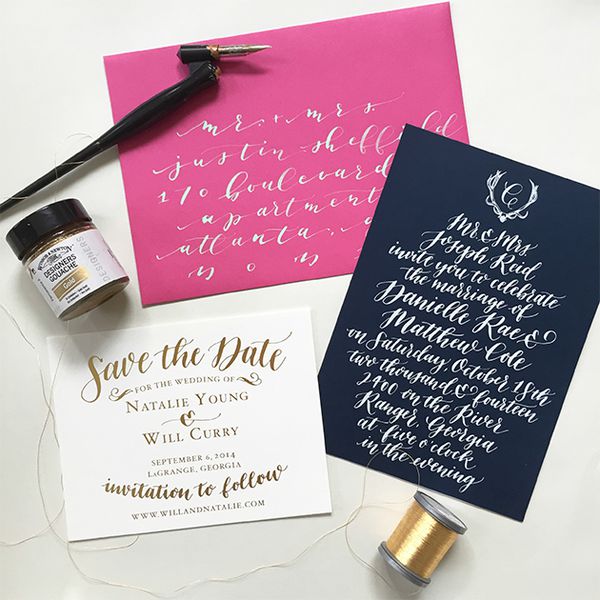 mr. + mrs.
justin sheffield
170 boulevard
apartment
atlanta,
Mr & Mrs.
Joseph Reid
invite you to celebrate
the marriage of
Danielle Rae &
Matthew Cole
on Saturday, October 18th,
two thousand & fourteen
2400 on the River
Ranger, Georgia
at five o'clock
in the evening
DESIGNERS
GOUACHE
Gold
DESIGNERS
Save the Date
FOR THE WEDDING OF
NATALIE YOUNG
&
WILL CURRY
SEPTEMBER 6, 2014
LAGRANGE, GEORGIA
invitation to follow
WWW.WILLANDNATALIE.COM